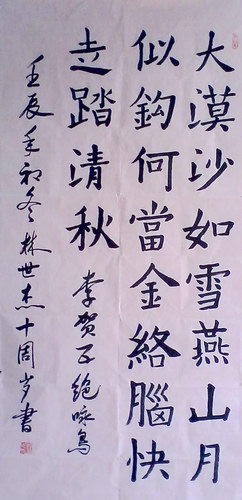 大漠沙如雪燕山月
似鈎何當金絡腦快
走踏清秋 李贺五絕咏馬
壬辰年初冬林世杰十周岁書